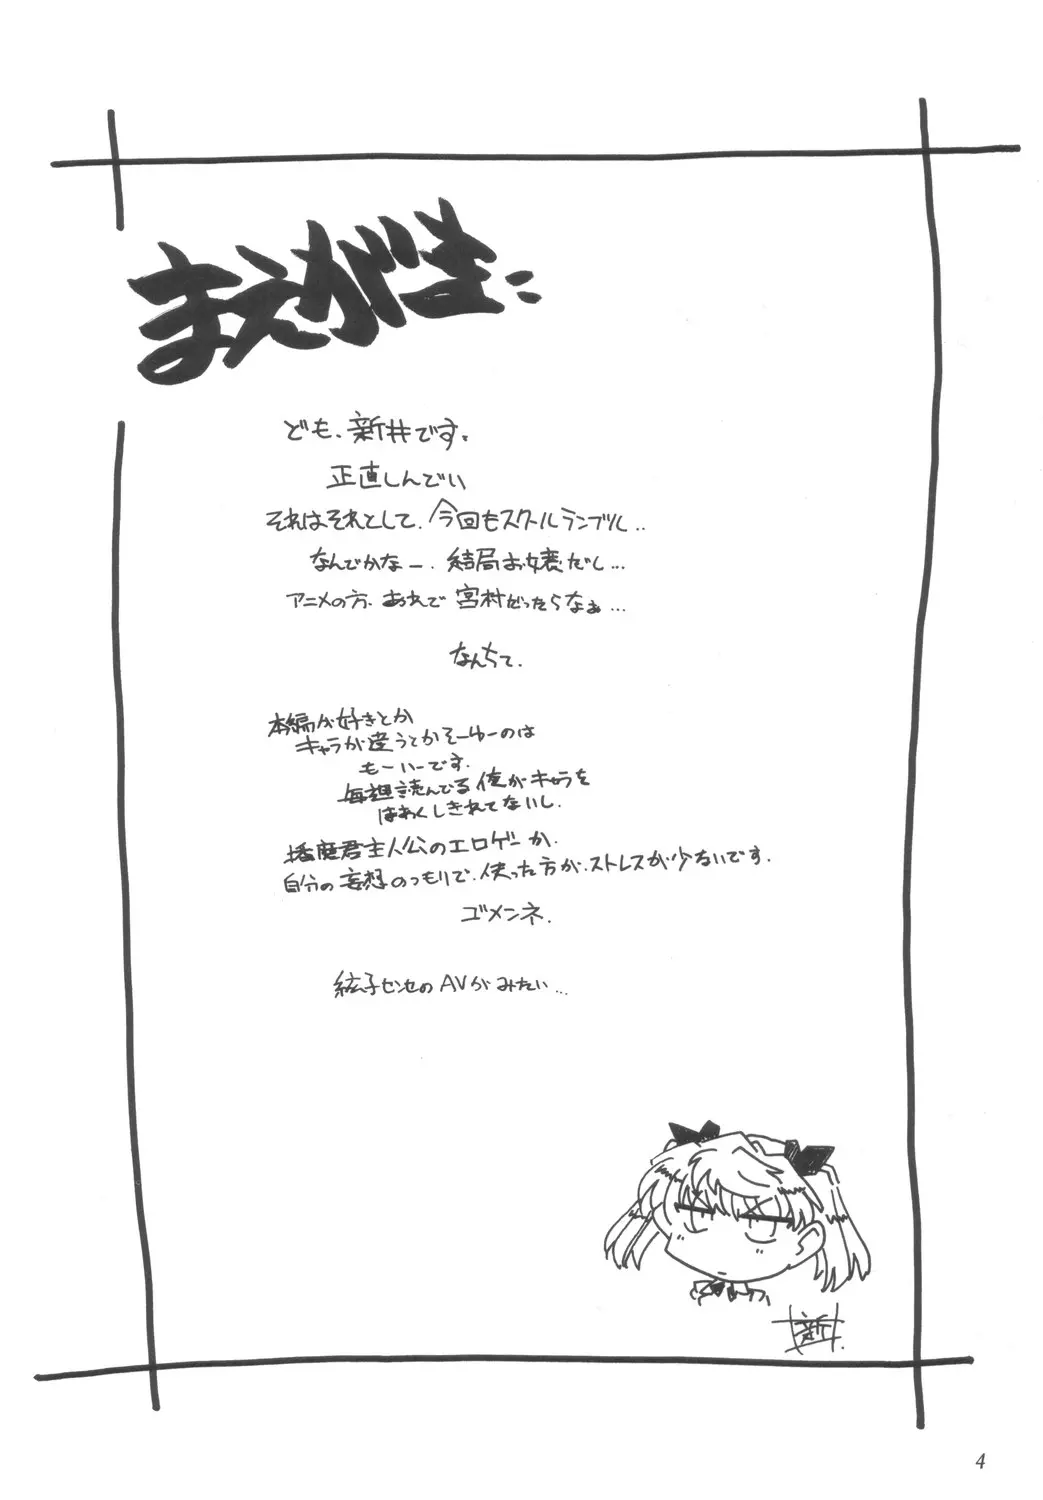 まえがき
ども、新井です。
正直しんでい
それはそれとして、今回もスクールランブル..
なんでかなー、結局お嬢だし...
アニメの方、あれで宮村だったらなぁ...
なんちて。
本編が好きとか
キャラが違うとかそーゆーのは
もーいーです。
毎週読んでる俺がキャラを
はあくしきれてないし。
播磨君主人公のエロゲーか、
自分の妄想のつもりで、使った方が、ストレスが少ないです。
ゴメンネ.
絃子センセのAVがみたい...
新
4